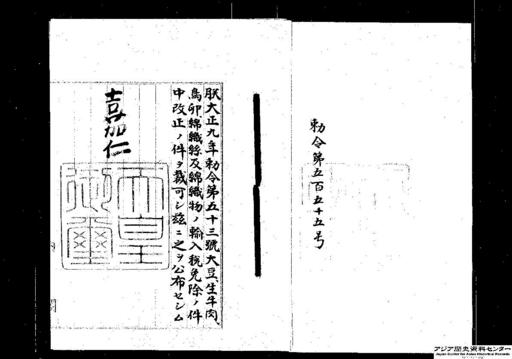 勅令第五百五十五号
朕大正九年勅令第五十三號大豆、生牛肉、
鳥卵綿織絲及綿織物ノ輸入税免除ノ件
中改正ノ件ヲ裁可シ玆ニ之ヲ公布セシム
嘉仁
天皇御璽
アジア歴史資料センター
Japan Center for Asian Historical Records